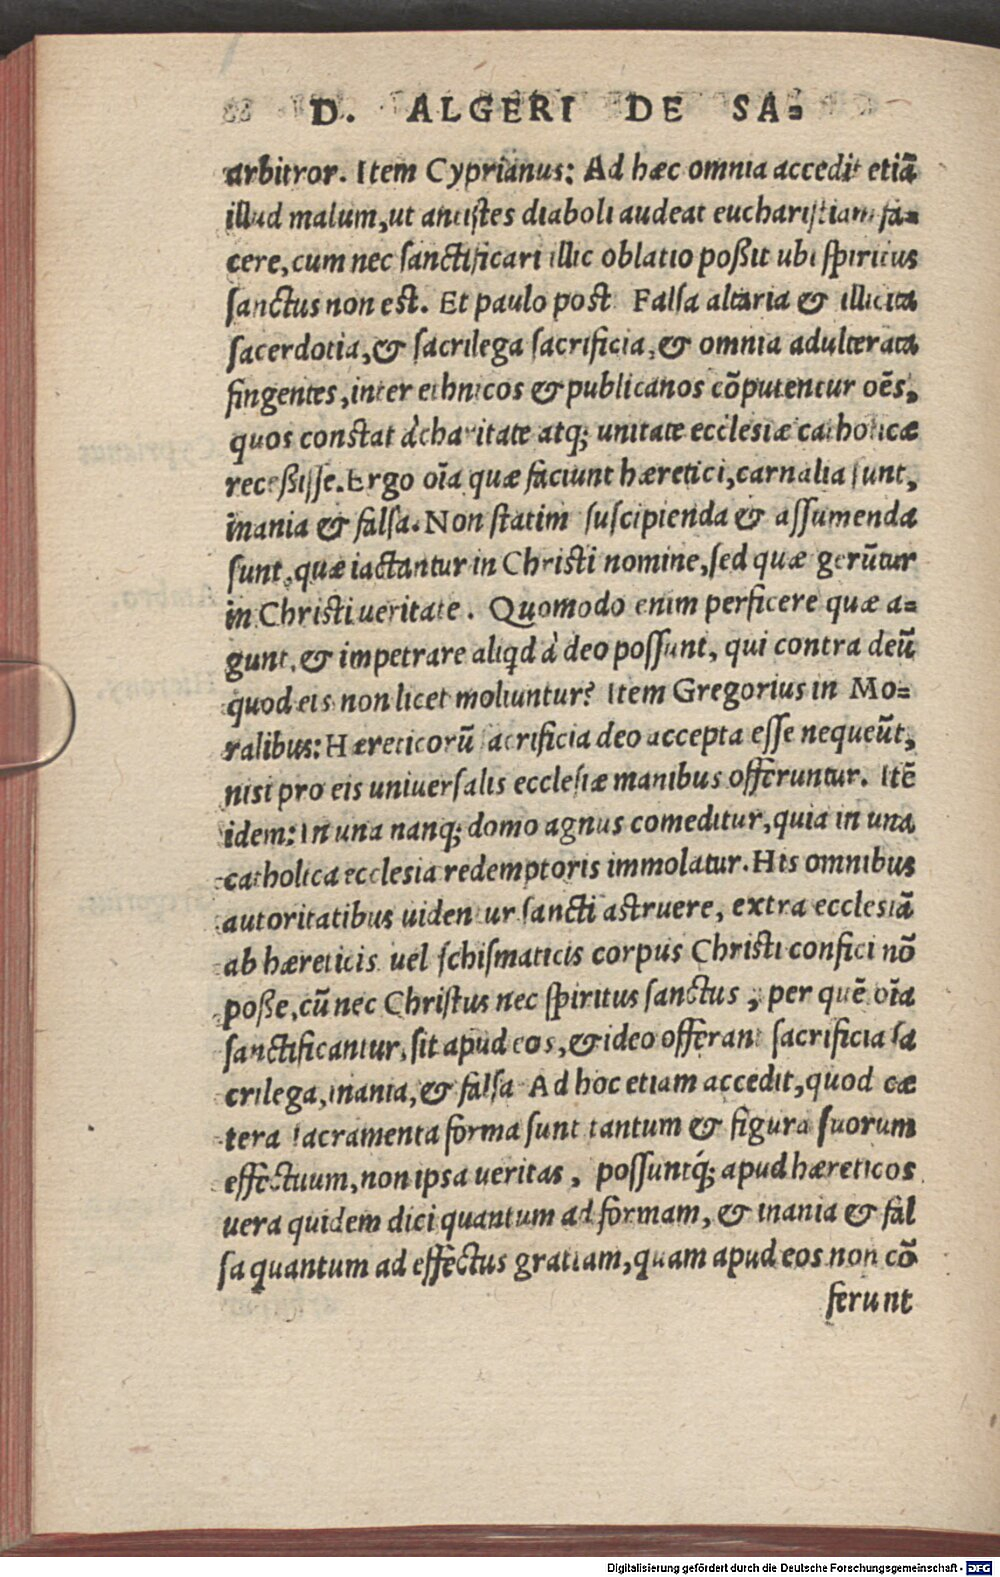 D. ALGERI DE SA-
arbitror. Item Cyprianus: Ad hæc omnia accedit etiā
illud malum, ut antistes diaboli audeat eucharistiam fa-
cere, cum nec sanctificari illic oblatio poßit ubi spiritus
sanctus non est. Et paulo post Falsa altaria & illicita
sacerdotia, & sacrilega sacrificia, & omnia adulterata
fingentes, inter ethnicos & publicanos cōputentur oēs,
quos constat à charitate atq; unitate ecclesiæ catholicæ
receßisse. Ergo oīa quæ faciunt hæretici, carnalia sunt,
inania & falsa. Non statim suscipienda & assumenda
sunt, quæ iactantur in Christi nomine, sed quæ gerūtur
in Christi ueritate. Quomodo enim perficere quæ a-
gunt, & impetrare aliqd à deo possunt, qui contra deū
quod eis non licet moliuntur? Item Gregorius in Mo-
ralibus: Hæreticorū sacrificia deo accepta esse nequeūt,
nisi pro eis uniuersalis ecclesiæ manibus offeruntur. Itē
idem: In una nanq; domo agnus comeditur, quia in una
catholica ecclesia redemptoris immolatur. His omnibus
autoritatibus uidentur sancti astruere, extra ecclesiā
ab hæreticis uel schismaticis corpus Christi confici nō
poße, cū nec Christus nec spiritus sanctus, per quē oīa
sanctificantur, sit apud eos, & ideo offerant sacrificia sa
crilega, inania, & falsa Ad hoc etiam accedit, quod cæ
tera sacramenta forma sunt tantum & figura suorum
effectuum, non ipsa ueritas, possuntq́; apud hæreticos
uera quidem dici quantum ad formam, & inania & fal
sa quantum ad effectus gratiam, quam apud eos non cō
ferunt
Digitalisierung gefördert durch die Deutsche Forschungsgemeinschaft - DFG